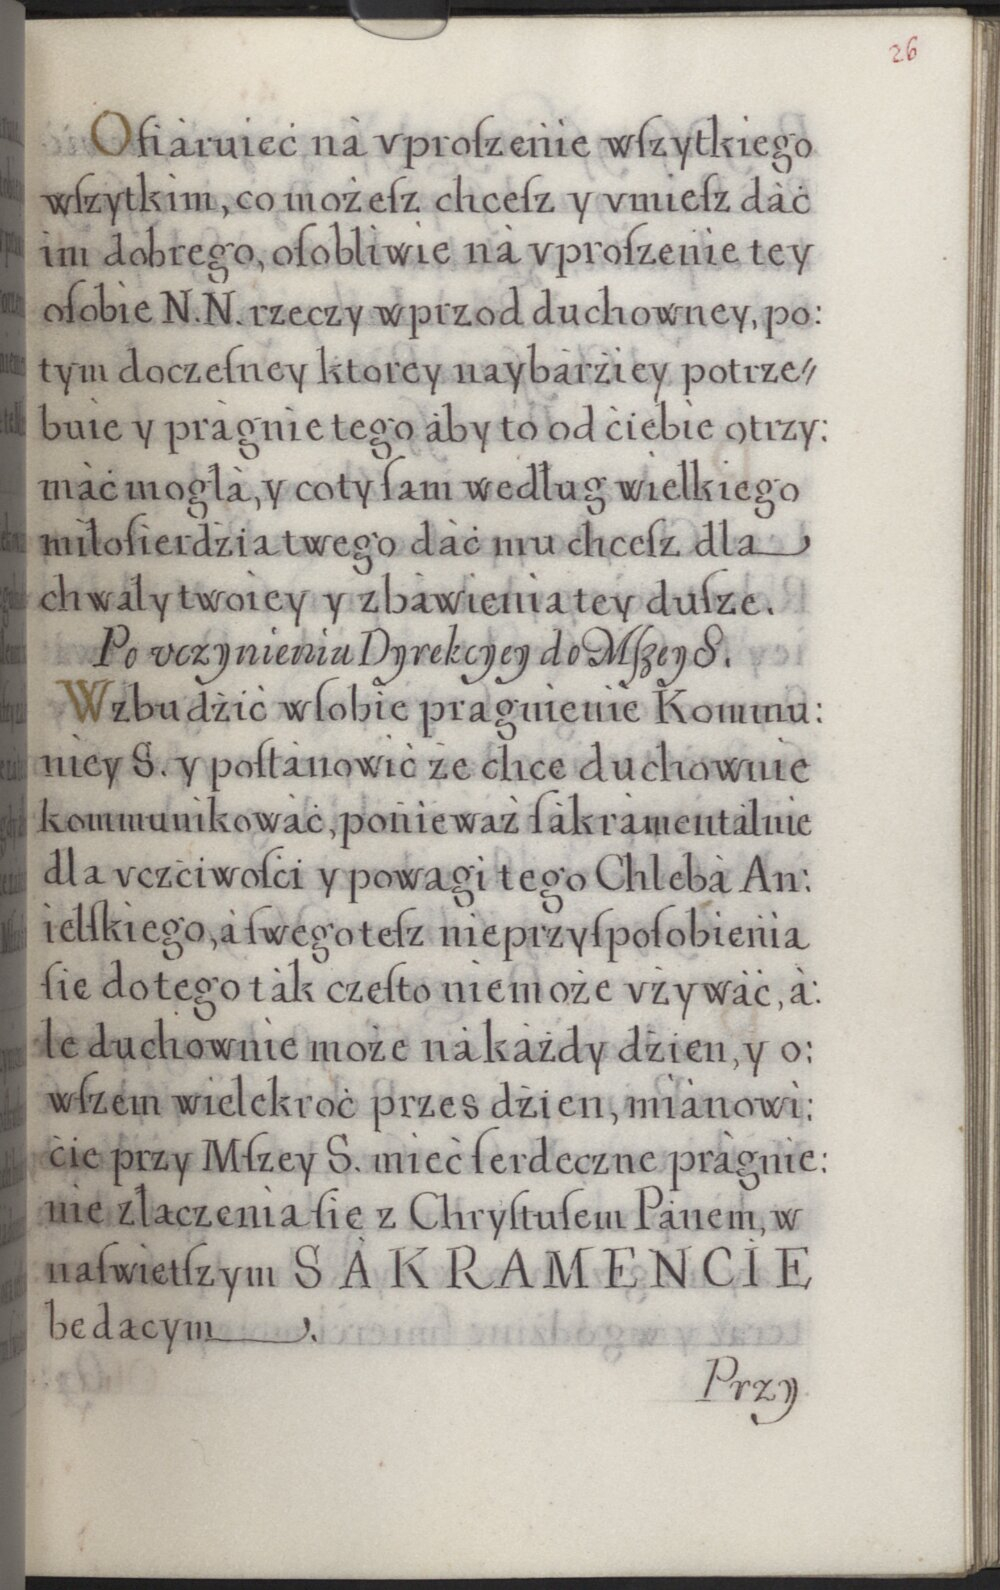 26
Ofiàruieċ nà vproſzeṅie wſzytkiego
wſzytkim, co możeſz chceſz y vmieſz dàċ
im dobrego, oſobliwie nà vproſzeṅie tey
oſobie N.N. rzeczy wprzod duchowney, po:
tym doczeſney ktorey naybàrżiey potrze//
buie y pràgnie tego àby to od ċiebie otrzy:
màċ mogłà, y coty ſam według wielkiego
miłoſierdżia twego dàċ mu chceſz dla
chwały twoiey y zbàwieṅia tey duſze.
Po vczynieniu Dyrekcyey do Mſzey S.
Wzbudżiċ wſobie pragnieṅie Kommu:
niey S. y poſtànowiċ że chce duchownie
kommunikowàċ, poṅieważ ſàkràmentàlnie
dla vczċiwoſci y powagi tego Chlebà An:
ielſkiego, à ſwego teſz nieprzyſpoſobieṅia
ſie do tego tàk czeſto niemoże vżywàċ, à:
le duchownie może nà kàżdy dżien, y o:
wſzem wielekroċ przes dżien, miànowi:
ċie przy Mſzey S. mieċ ſerdeczne pràgnie:
nie złaczenia ſie z Chryſtuſem Pànem, w
naſwietſzym SÀKRAMENCİE
bedacym.
Przy